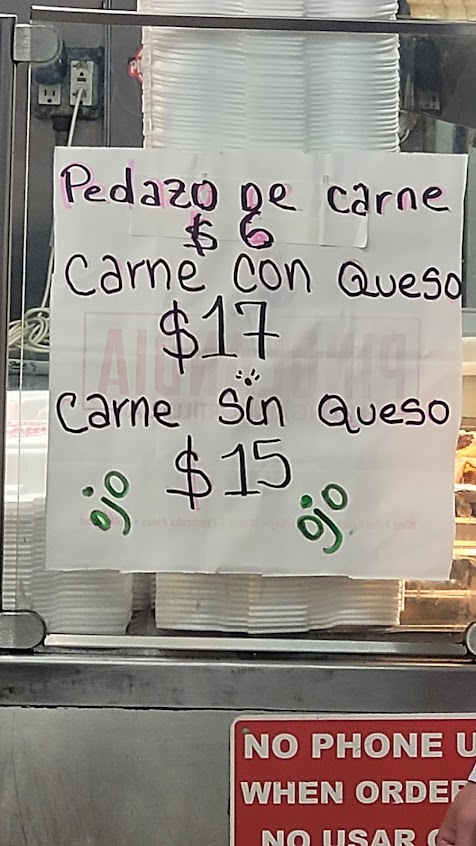 Pedazo De carne
$ 6
Carne con Queso
$17
Carne Sin Queso
$15
ojo
ojo
NO PHONE
WHEN
NO USAR